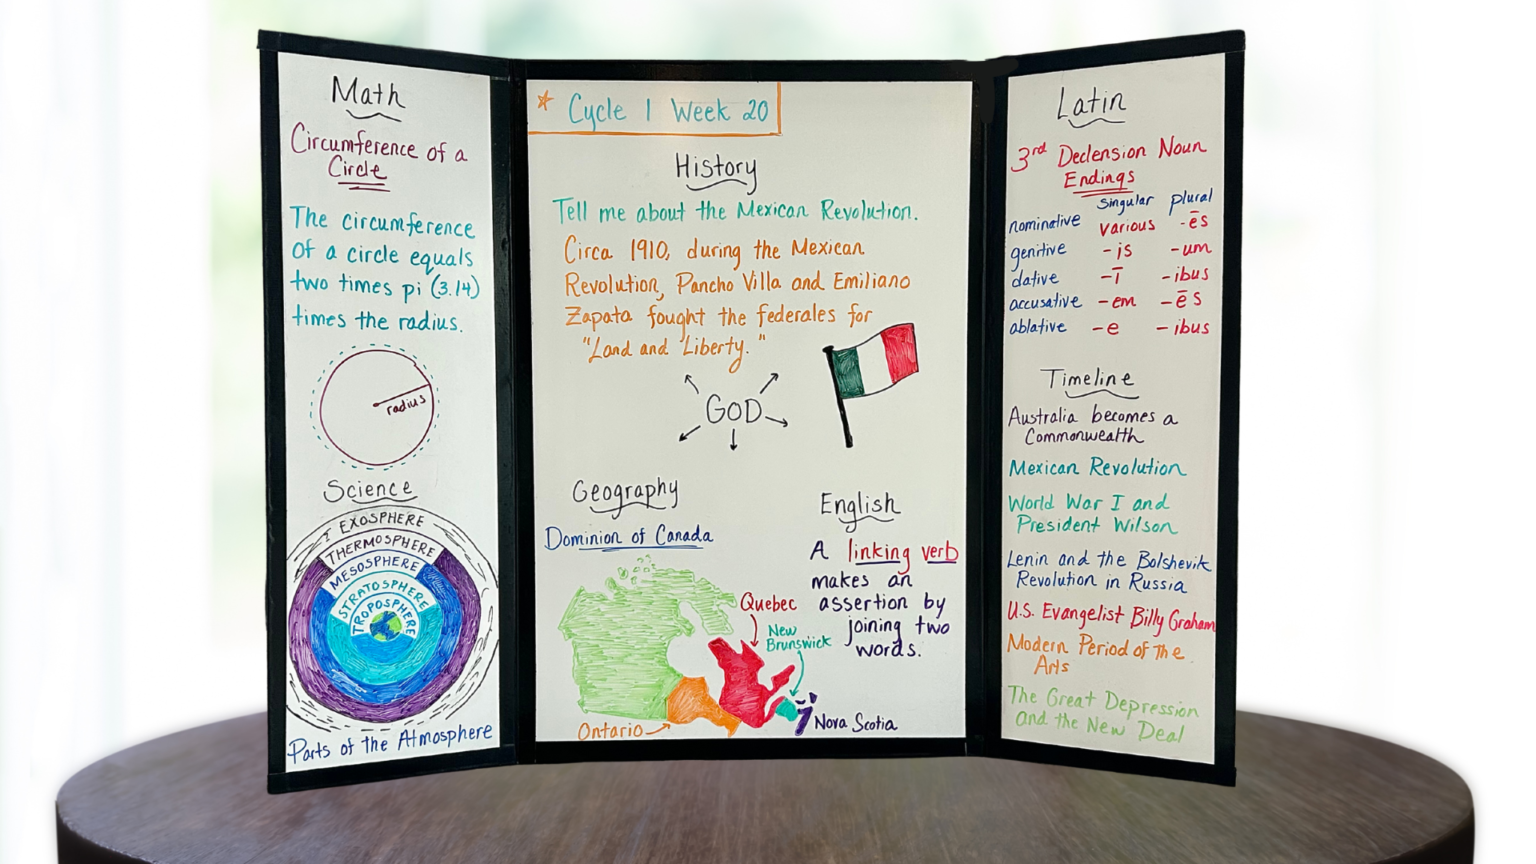 Math
Circumference of a
Circle
The circumference
of a circle equals
two times pi (3.14)
times the radius.
radius
Science
EXOSPHERE
THERMOSPHERE
MESOSPHERE
STRATOSPHERE
TROPOSPHERE
Parts of the Atmosphere
* Cycle 1 Week 20
History
Tell me about the Mexican Revolution.
Circa 1910, during the Mexican
Revolution, Pancho Villa and Emiliano
Zapata fought the federales for
"Land and Liberty."
GOD
Geography
Dominion of Canada
Quebec
New
Brunswick
Ontario
Nova Scotia
English
A linking verb
makes an
assertion by
joining two
words.
Latin
3rd Declension Noun
Endings
singular plural
nominative various -ēs
genitive -is -um
dative -ī -ibus
accusative -em -ēs
ablative -e -ibus
Timeline
Australia becomes a
Commonwealth
Mexican Revolution
World War I and
President Wilson
Lenin and the Bolshevik
Revolution in Russia
U.S. Evangelist Billy Graham
Modern Period of the
Arts
The Great Depression
and the New Deal